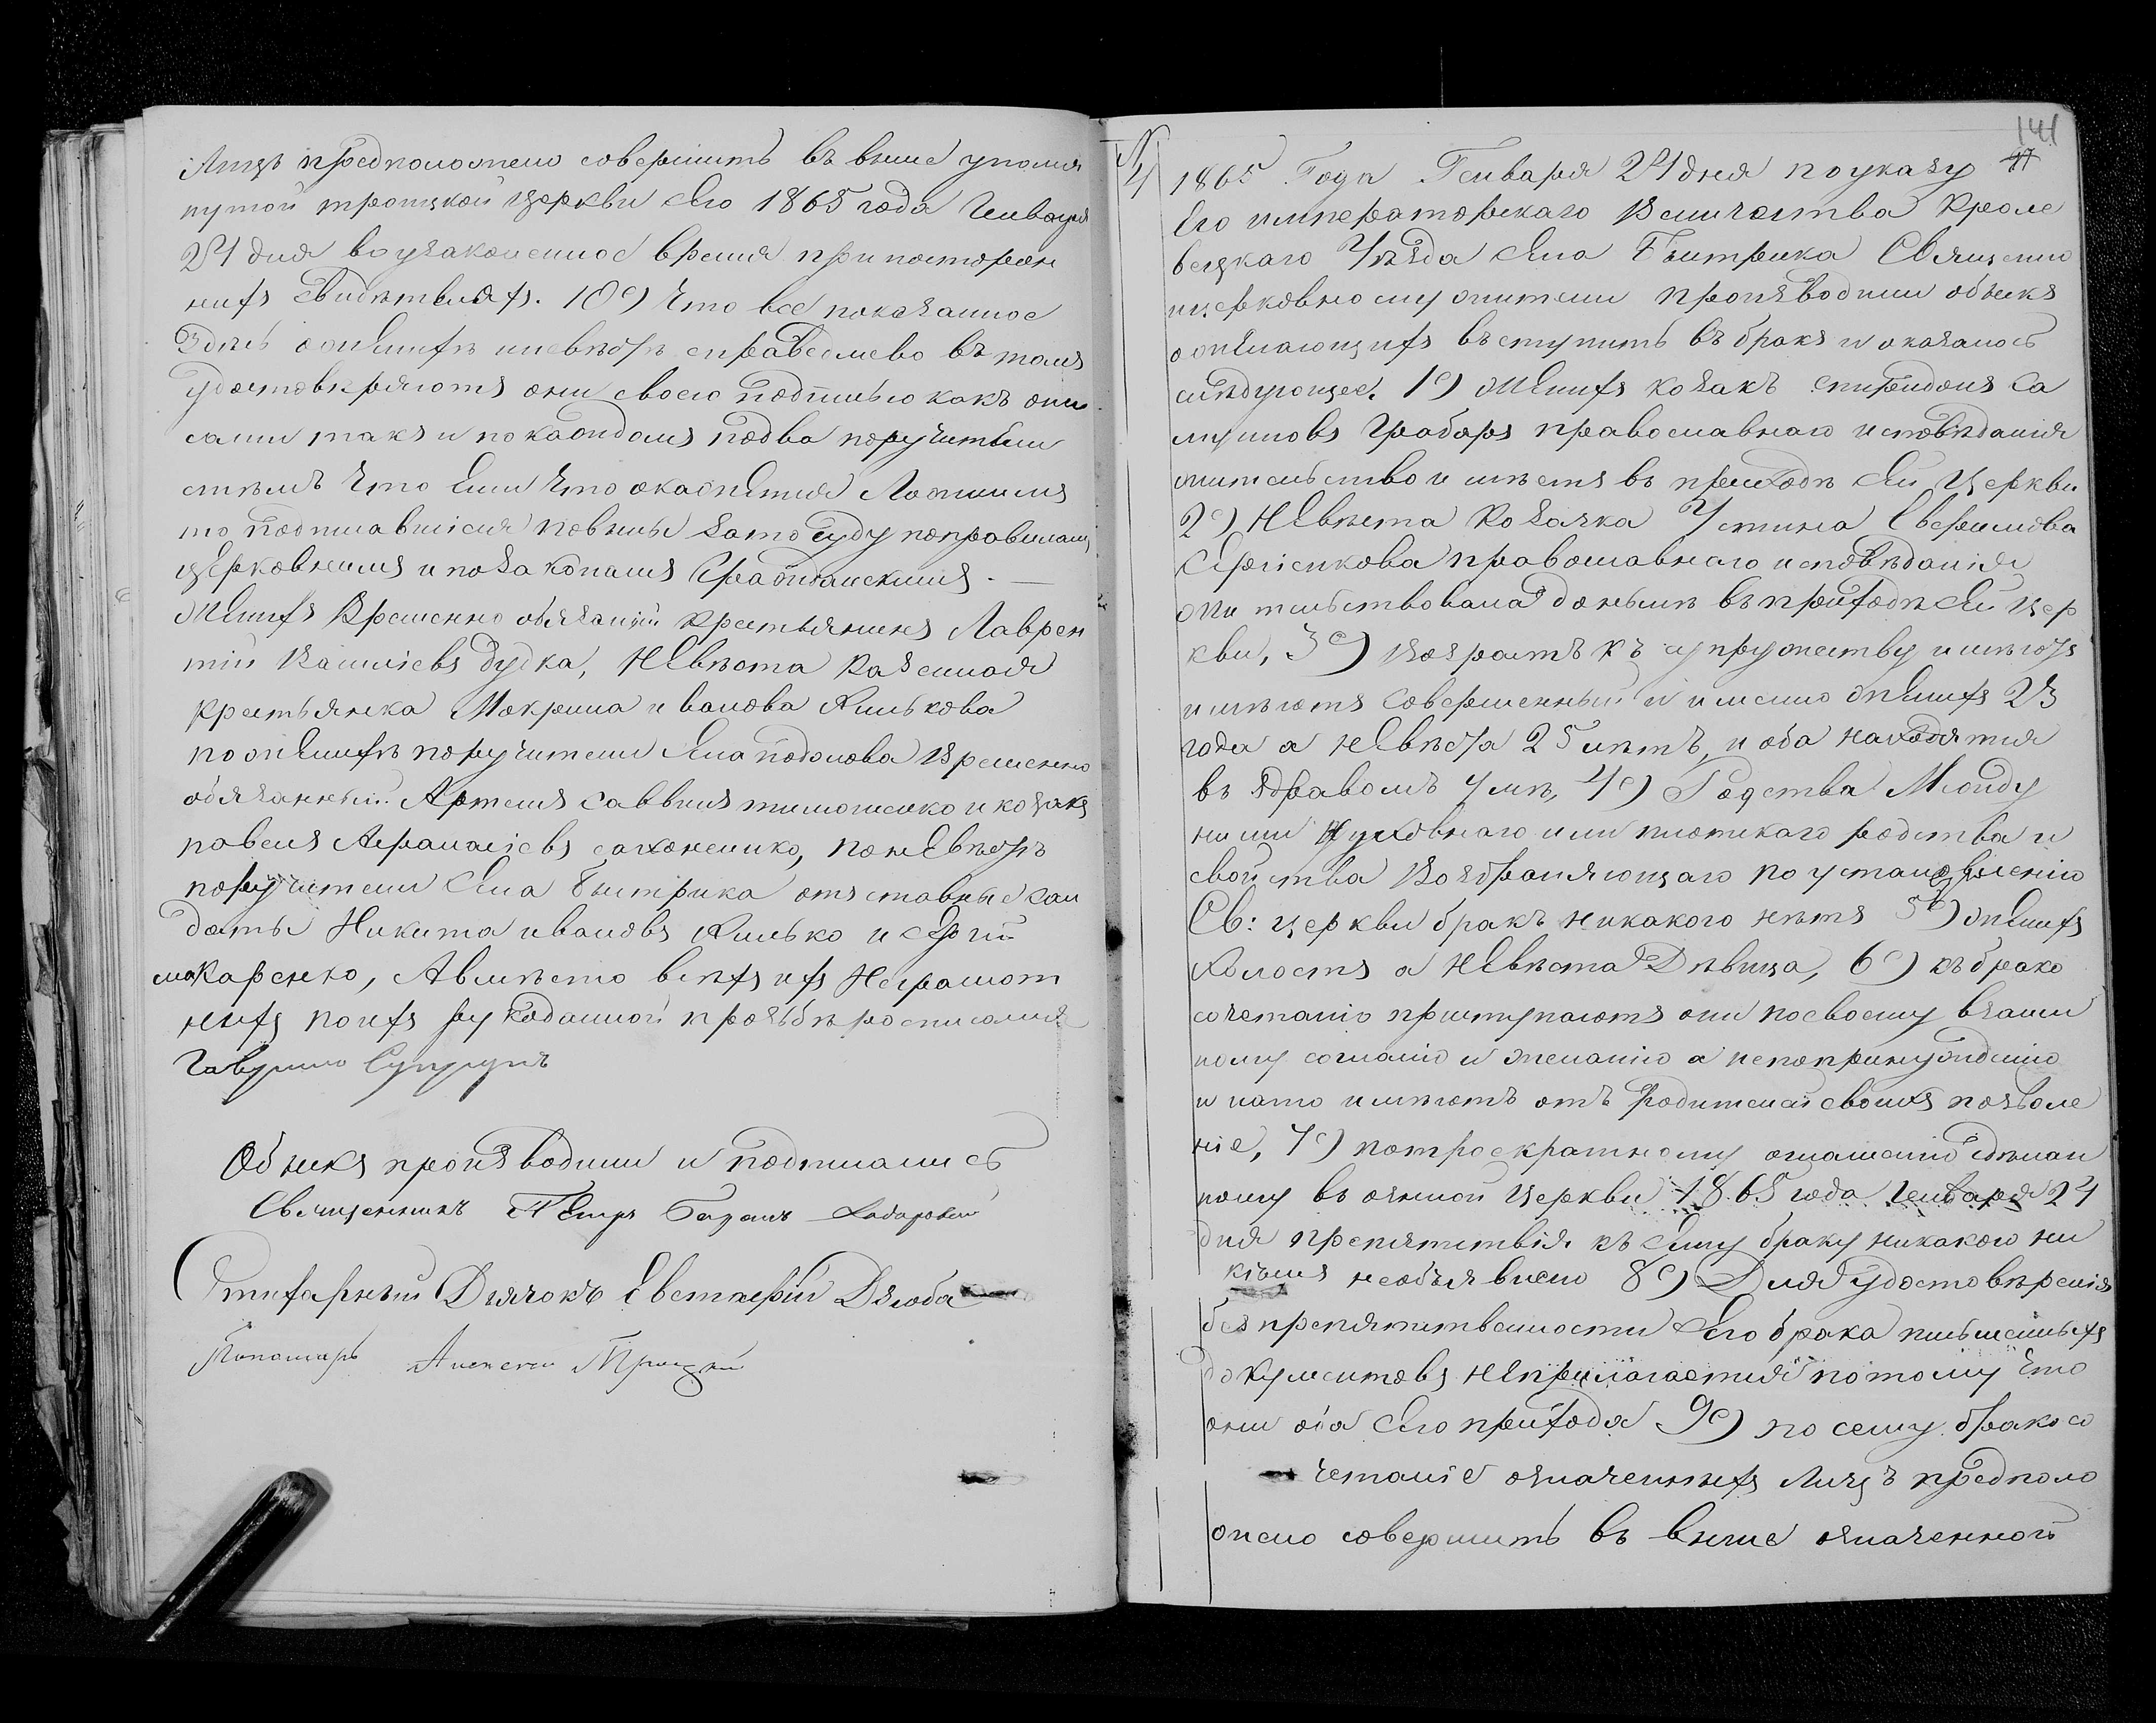 Лицъ предположено совершить въ выше упомя
нутой троицкой Церкви сего 1865 года Генваря
24 дня воузаконенное время при посторон
нихъ свидѣтеляхъ. 10е) Что все показанное
здѣсь оженихѣ иневѣстѣ справедливо въ томъ
удостовѣряютъ они своею подписью какъ они
сами такъ и покаждомъ подва поручители
стѣмъ что если что окажется Ложнымъ
то подписавшіеся повинны зато суду поправиламъ
церковнымъ и позаконамъ Гражданскимъ. —
Женихъ Временно обязанный крестьянинъ Лаврен
тій Василіевъ Дудка, Невѣста Казенная
крестьянка Мокрина иванова Килькова
поженихѣ поручители Села подолова Временно
обязанный Артемъ Саввинъ тимошенко и козакъ
павелъ Афанасіевъ сахоненко, поневѣстѣ
поручители Села быстрика отставные сол
даты Никита ивановъ Килько и Сергій
макаренко, Авмѣсто всѣхъ ихъ Неграмот
ныхъ поихъ рукоданной прозьбѣ росписался
Гаврило Супрунъ
Обыскъ производили и подписались
Священникъ Петръ Базilевъ
Стихарный Дьячокъ Евстафій Дзюба
Пономарь Алексей Троцкій
141
№
4
17
1865 Года Генваря 24 дня поуказу
Его императорскаго Величества Кроле
вецкаго Уѣзда Села Быстрика Священно
ицерковнослужители производили обыскъ
ожелающихъ въступить въ бракъ и оказалось
слѣдующее. 1е) Женихъ козакъ Спиридонъ Са
муиловъ Грабаръ православнаго исповѣданія
жительство имѣетъ въ приходѣ сей Церкви
2е) Невѣста Козачка Устина Ефремова
Сергіенкова православнаго исповѣданія
жительствовала донынѣ въ приходѣ сей Цер
кви, 3е) Возрастъ къ супружеству имѣютъ
имѣютъ совершенный и именно женихъ 23
года а Невѣста 25 лѣтъ, и оба находятся
въ здравомъ умѣ, 4е) Родства Между
ними духовнаго или плотскаго родства и
свойства Возбраняющаго по установленію
Св: церкви бракъ никакого нѣтъ 5е) женихъ
Холостъ а Невѣста Дѣвица, 6е) къ брако
сочетанію приступаютъ они посвоему взаим
ному согласію и желанію а непопринужденію
и нато имѣютъ отъ родителей своихъ позволе
ніе, 7е) потроекратному оглашенію здѣлан
ному въ оной Церкви 1865 года Генваря 24
дня препятствія къ сему браку никакого ни
кѣмъ необъявлено 8е) Для удостовѣренія
безпрепятственности Сего брака письменныхъ
документовъ неприлагается потому что
они оба Сего прихода 9е) по сему бракосо
четаніе означенныхъ Лицъ предполо
жено совершить въ выше означенной